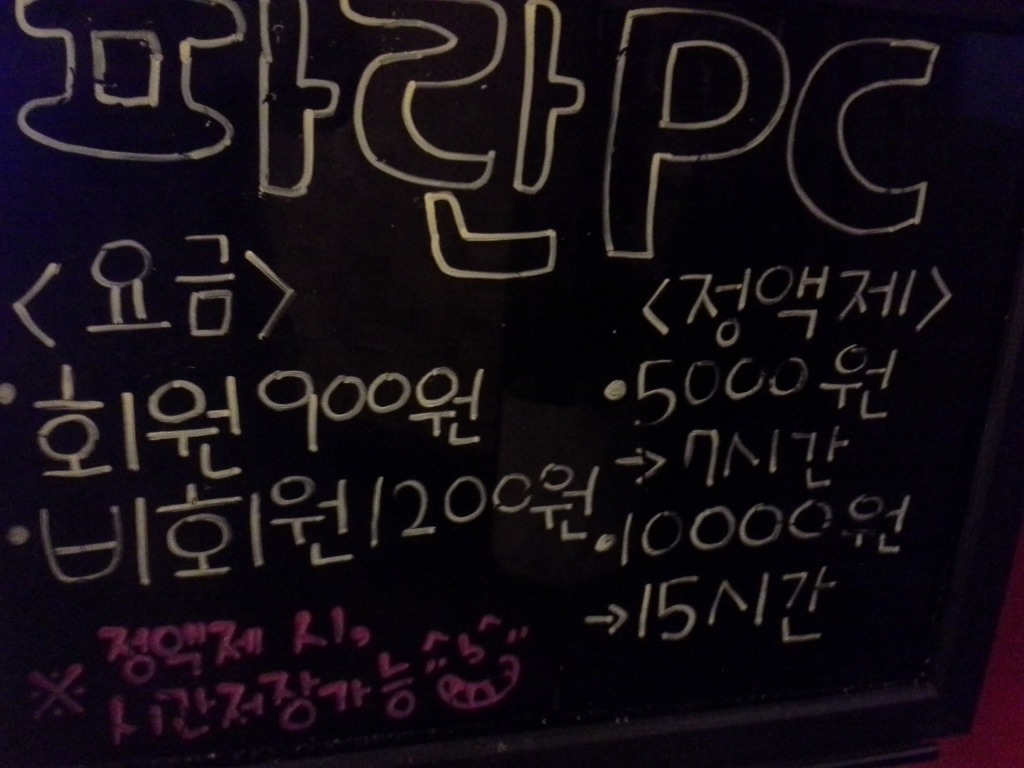 파란PC
<요금>
• 회원 900원
• 비회원 1200원
<정액제>
• 5000원
→ 7시간
• 10000원
→ 15시간
※ 정액제 시,
시간저장가능